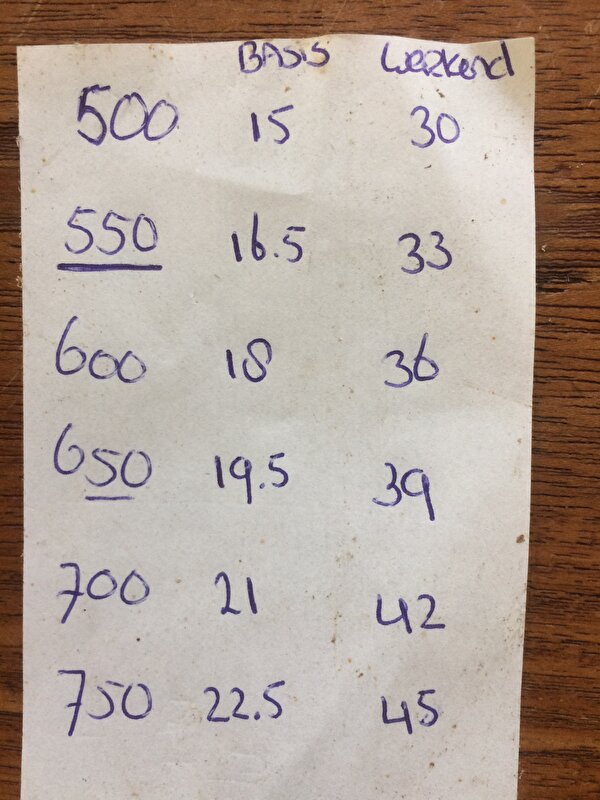 BASIS Weekend
500 15 30
550 16.5 33
600 18 36
650 19.5 39
700 21 42
750 22.5 45